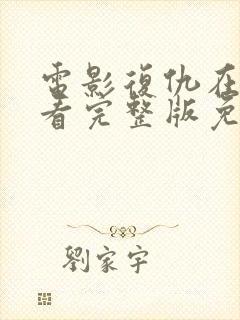 電影復仇在
看完整版免
劉家宇